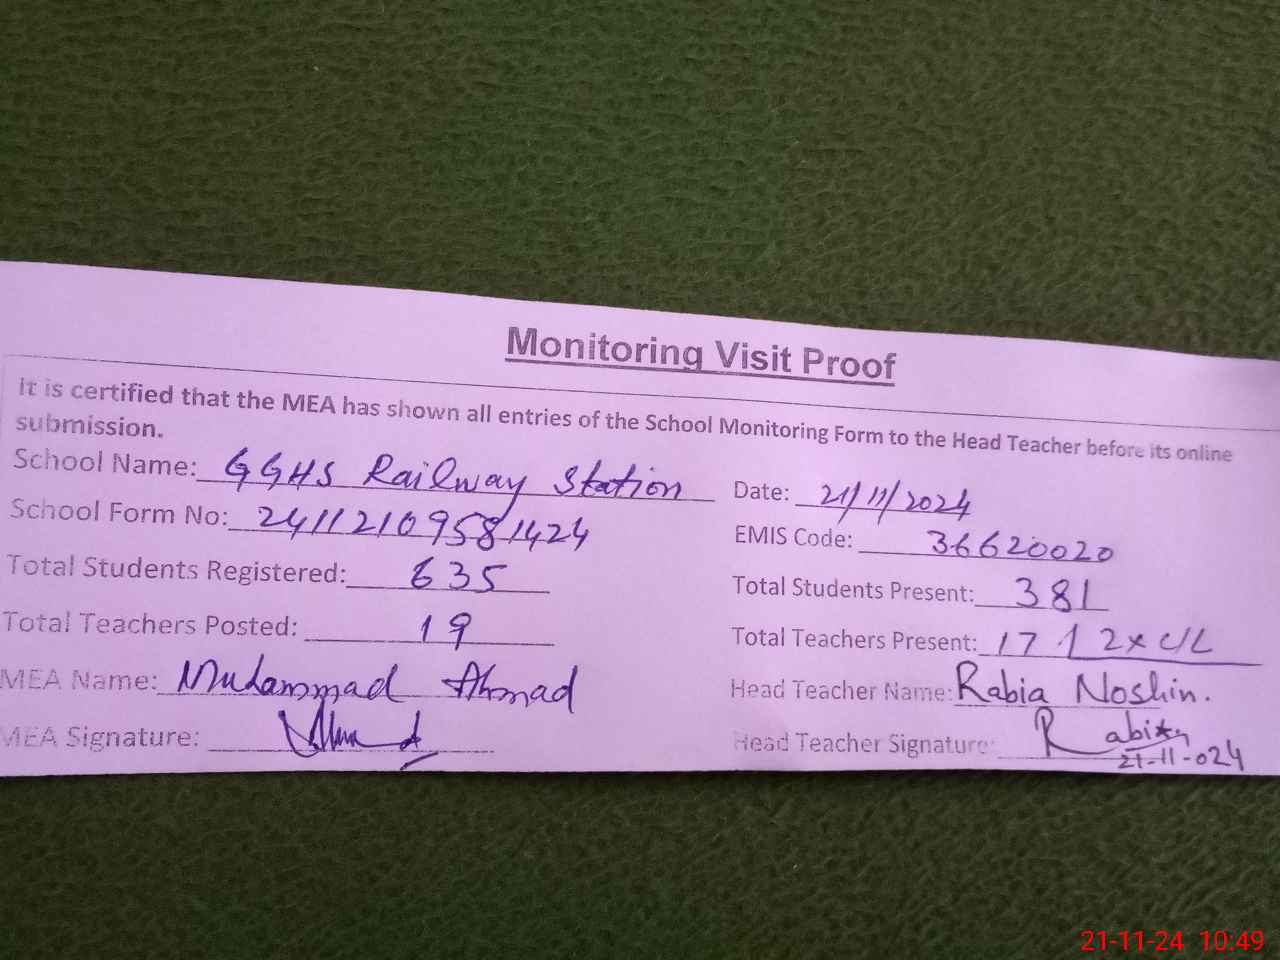 Monitoring Visit Proof
It is certified that the MEA has shown all entries of the School Monitoring Form to the Head Teacher before its online
submission.
School Name: GGHS Railway Station Date: 21/11/2024
School Form No: 24112109581424 EMIS Code: 36620020
Total Students Registered: 635 Total Students Present: 381
Total Teachers Posted: 19 Total Teachers Present: 17 / 2x C/L
MEA Name: Muhammad Ahmad Head Teacher Name: Rabia Noshin.
MEA Signature: Head Teacher Signature: Rabia
21-11-024
21-11-24 10:49